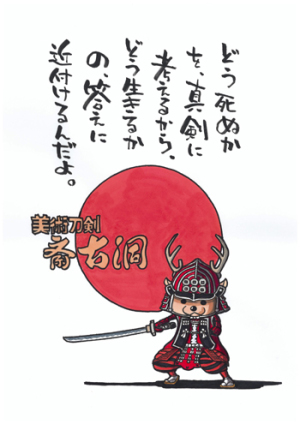 どう死ぬか
を、真剣に
考えるから、
どう生きるか
の、答えに
近付けるんだよ。
美術刀剣
斋古洞